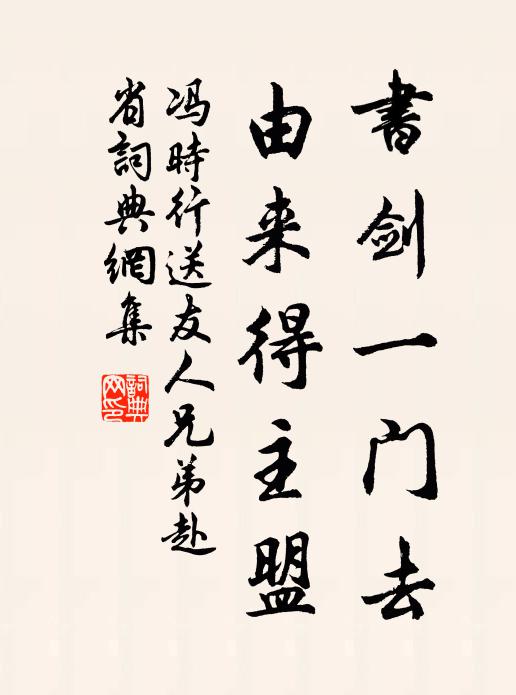 書剑一门去
由来得主盟
冯時行送友人兄弟赴
省詞典網集
詞典
网印